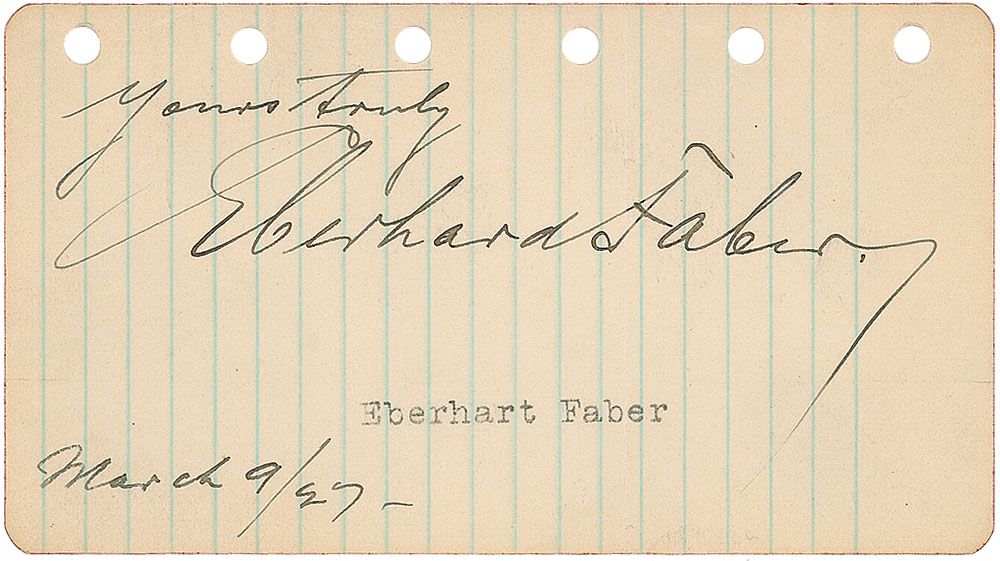 Yours truly
Eberhard Faber.
Eberhart Faber
March 9/27-